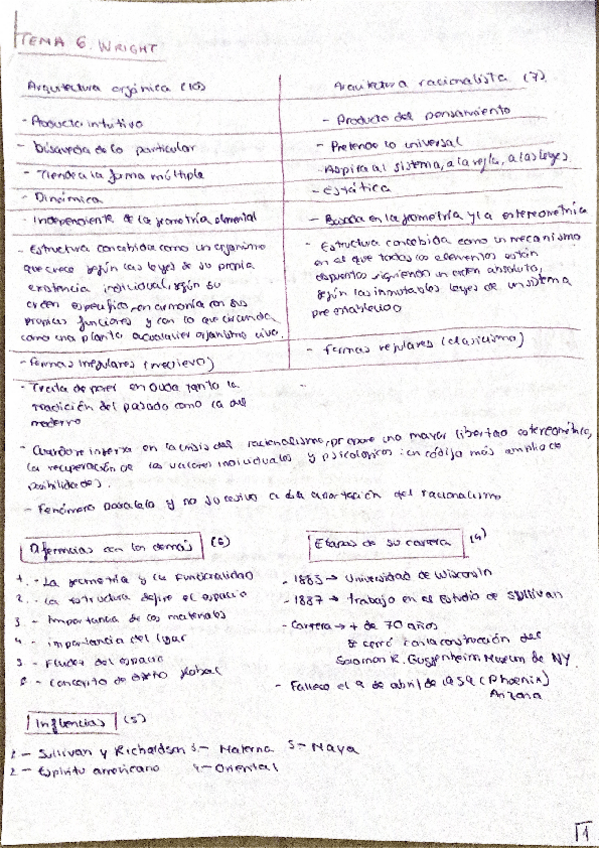 TEMA 6. WRIGHT
Arquitectura orgánica (10)
- Producto intuitivo
- Búsqueda de lo particular
- Tiende a la forma múltiple
- Dinámica
- Independiente de la geometría elemental
- Estructura concebida como un organismo
que crece según las leyes de su propia
existencia individual, según su
orden específico, en armonía con sus
propias funciones y con lo que circunda,
como una planta o cualquier organismo vivo.
- Formas irregulares (medievo)
- Trata de poner en duda tanto la
tradición del pasado como la del
moderno
Arquitectura racionalista (7)
- Producto del pensamiento
- Pretende lo universal
- Aspira al sistema, a la regla, a las leyes
- Estática
- Basada en la geometría y la estereometría
- Estructura concebida como un mecanismo
en el que todos los elementos están
dispuestos siguiendo un orden absoluto,
según las inmutables leyes de un sistema
preestablecido
- Formas regulares (clasicismo)
- Cuando se inserta en la crisis del racionalismo, propone una mayor libertad estereométrica,
la recuperación de los valores individuales y psicológicos: un código más amplio de
posibilidades.
- Fenómeno paralelo y no sucesivo a la del racionalismo
Diferencias con los demás (6)
1. - La geometría y la funcionalidad
2. - La estructura define el espacio
3 - Importancia de los materiales
4 - importancia del lugar
5 - Fluidez del espacio
6 - Concepto de diseño global
Etapas de su carrera (4)
- 1885 → Universidad de Wisconsin
- 1887 → Trabajo en el Estudio de Sullivan
- Carrera → + de 70 años
Se cerró con la construcción del
Solomon R. Guggenheim Museum de NY.
- Falleció el 9 de abril de 1959 (Phoenix)
Arizona
Influencias (5)
1 - Sullivan y Richardson 3 - Materna 5 - Maya
2 - Espíritu americano 4 - Oriental
1